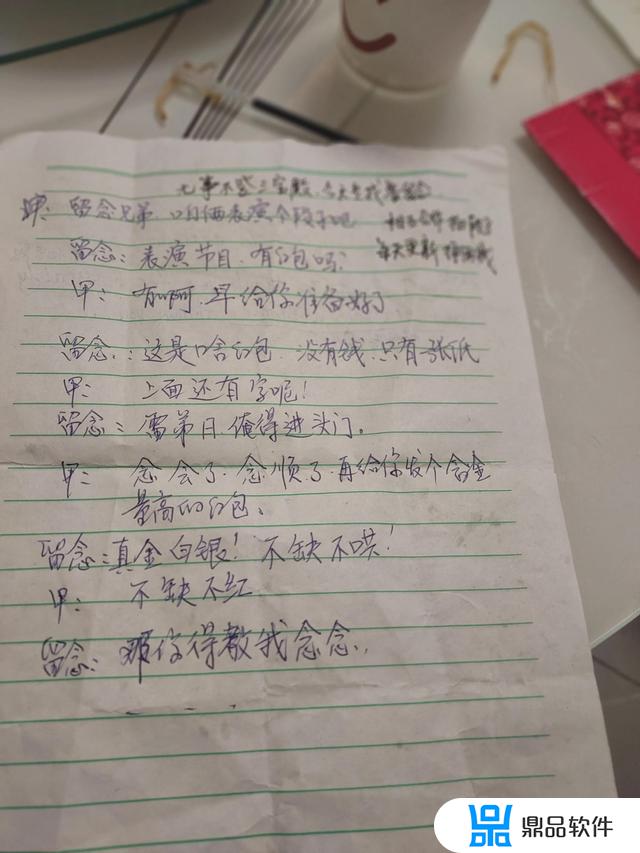 无事不登三宝殿.今天是我
甲: 留念兄弟.咱俩表演个段子吧
每天更新
留念: 表演节目.有红包吗?
甲: 有啊啊.早给你准备好了
留念: 这是啥红包.没有钱.只有一张纸
甲: 上面还有字呢!
留念: 需弟日.俺得进头门。
甲: 念会了.念顺了.再给你发个含金
量高的红包、
留念: 真金白银! 不缺不哄!
甲: 不缺不红
留念: 那你得教我念念.
鼎品软件